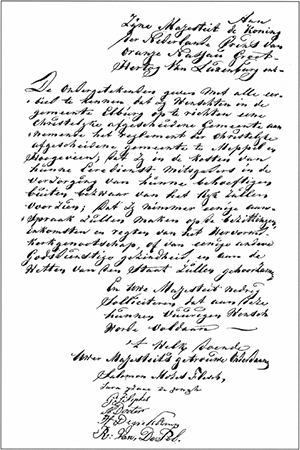 Aan
Zijne Majesteit de Koning
der Nederlanden Prins van
Oranje Nassau Groot-
Hertog van Luxemburg enz-
De Ondergetekenden geven met alle eer-
bied te kennen, dat zij Wenschten in de
gemeente Elburg op te richten eene
Christelijke afgescheidene Gemeente aan-
nemende het reglement der Christelijke
afgescheidene gemeente te Meppel en
Hoogeveen; dat zij in de kosten van
hunne Eeredienst mitsgaders in de
verzorging van hunne behoeftigen
buiten bezwaar van het Rijk zullen
voorzien; dat zij nimmer eenige aan-
spraak zullen maken op de bezittingen,
inkomsten en regten van het Hervormd
Kerkgenootschap, of van eenige andere
Godsdienstige gezindheid, en aan de
Wetten van den Staat zullen gehoorzamen
En Uwe Majesteit nedrig
Solliciteren dat aan deze
hunnen vuurigen Wensch
Worde voldaan
't Welk doende
Uwer Majesteits getrouwe Onderdanen
Salomon Mozes Flesch,